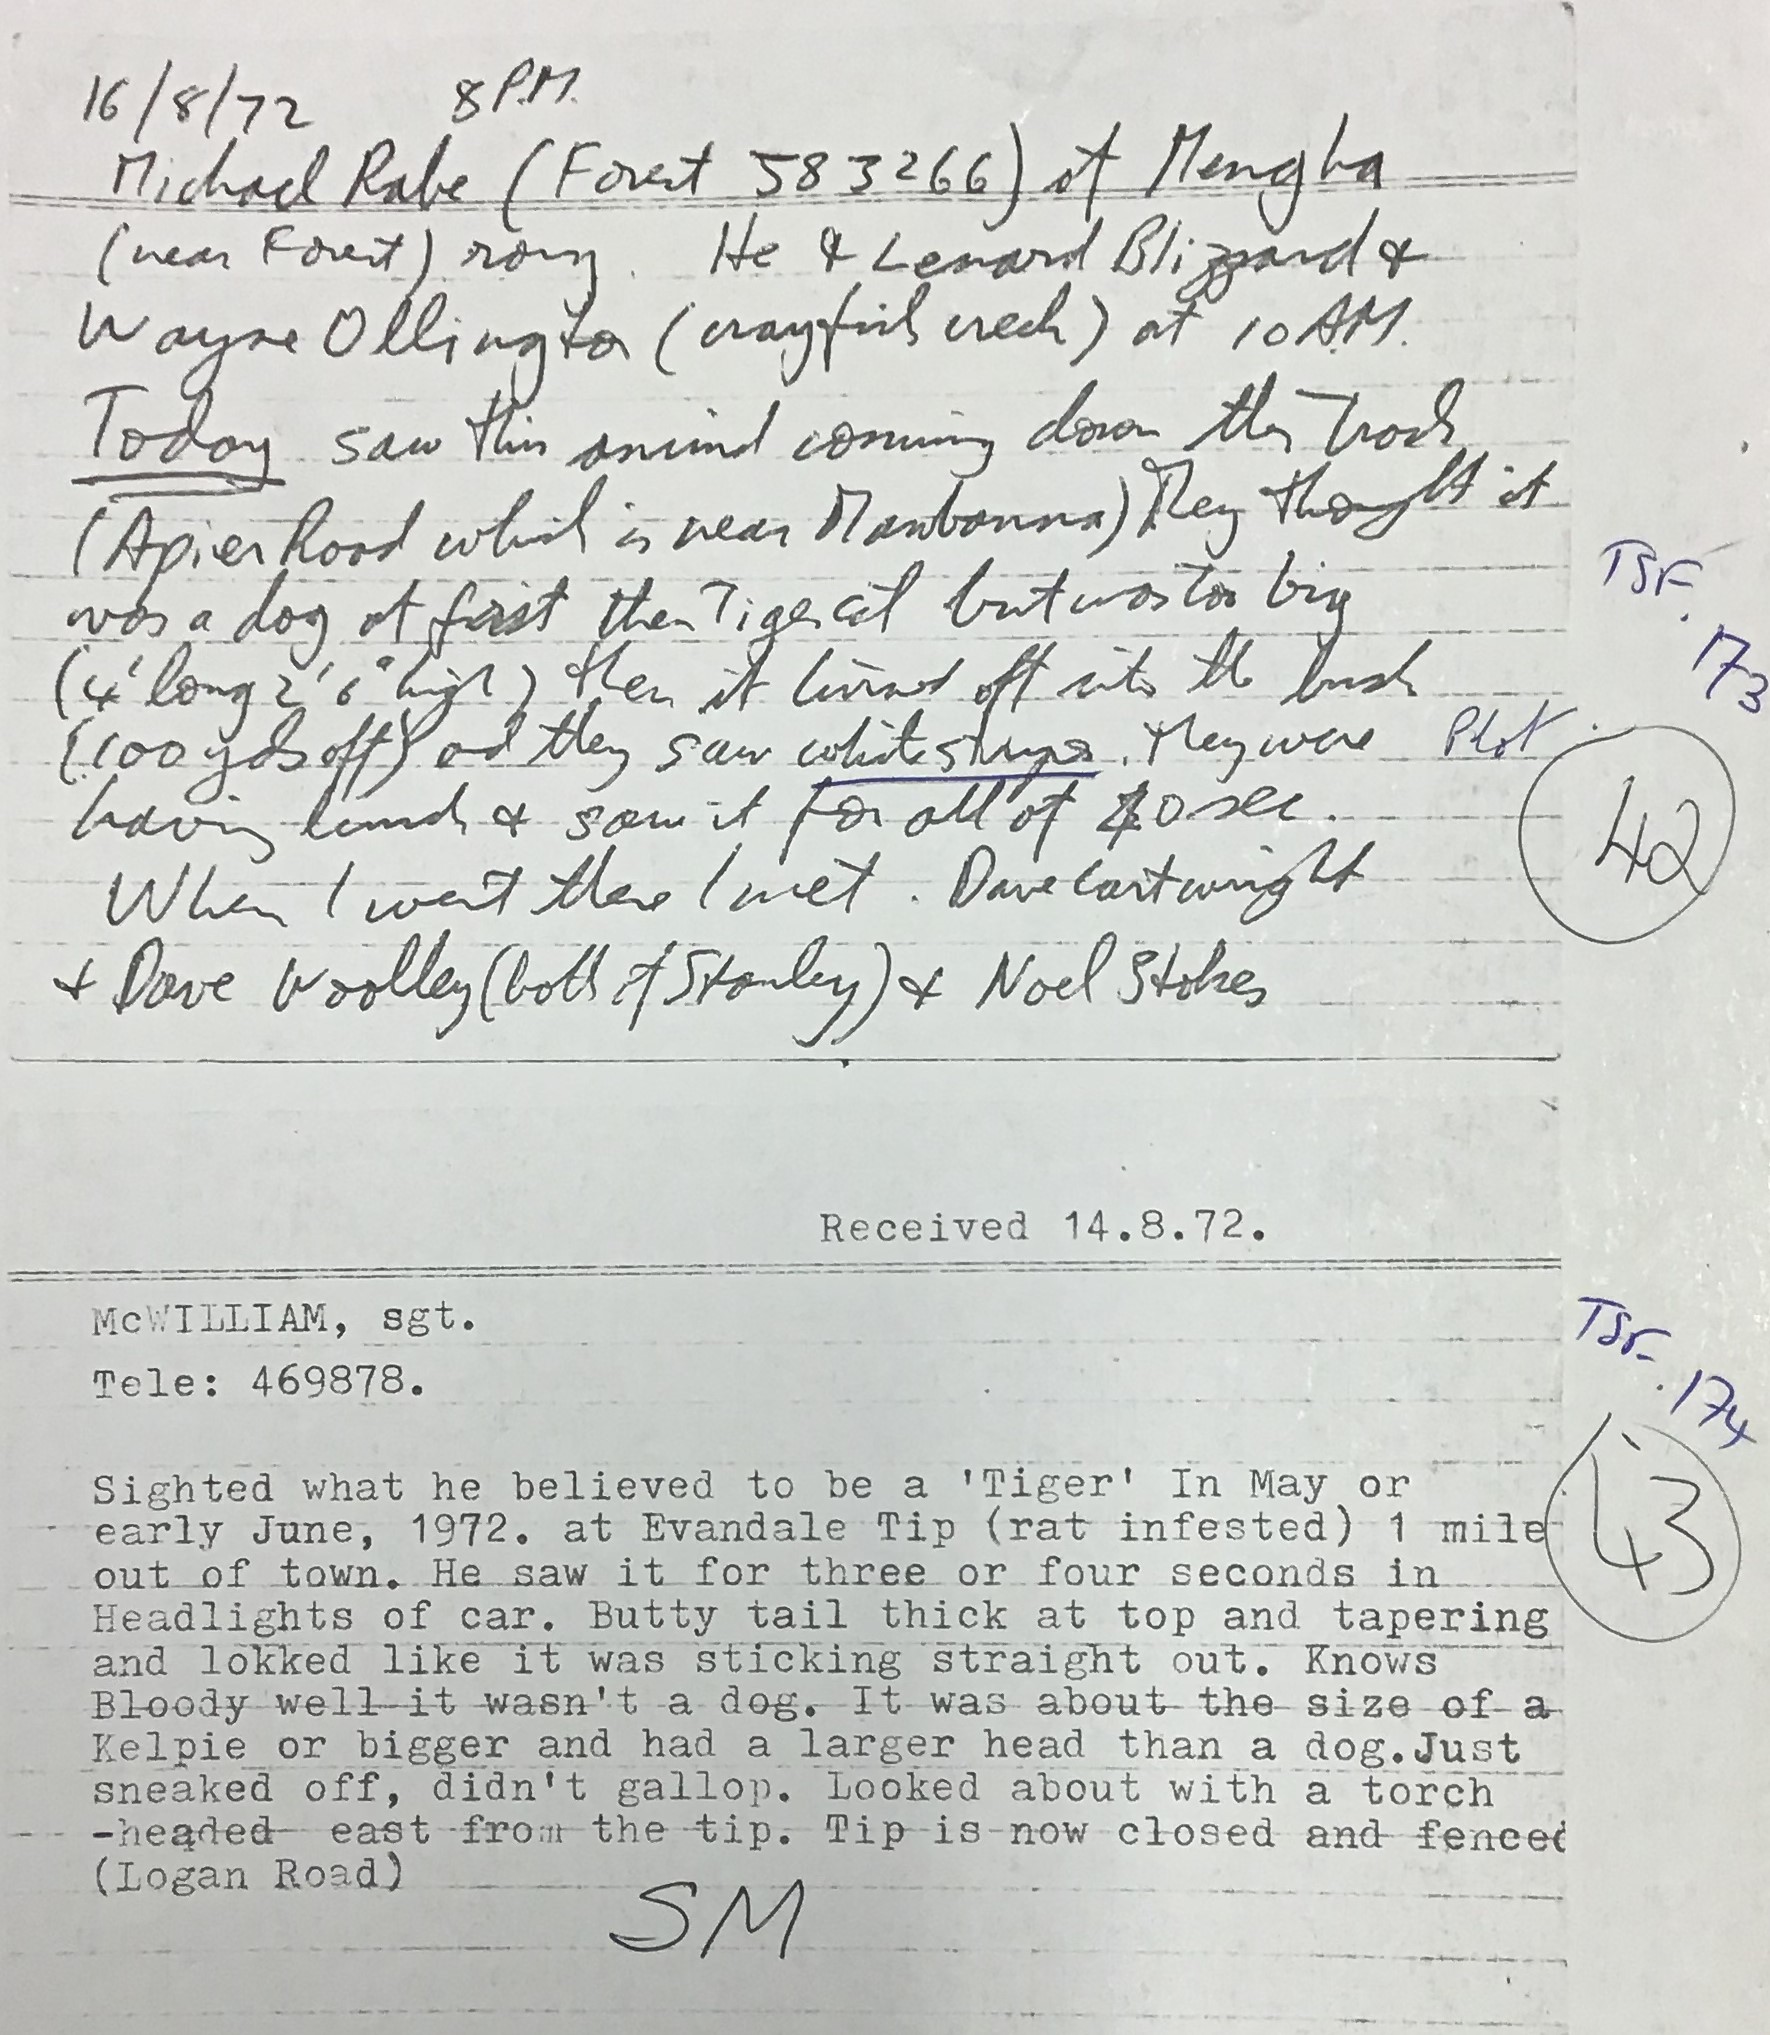 16/8/72 8 P.M.
Michael Rabe (Forest 583266) of Mengha
(near Forest) rang. He & Lenard Blizzard &
Wayne Ollington (crayfish creek) at 10 A.M.
Today saw this animal coming down the Track
(Apier Road which is near Mawbanna) They thought it
was a dog at first then Tiger cat but was too big
(4' long 2' 6" high) then it turned off into the bush
(100 yds off) and they saw white stripes. They were
having lunch & saw it for all of 40 sec.
When I went there I met. Dave Cartwright
& Dave Woolley (both of Stanley) & Noel Stokes
TSF.
173
Plot
42
Received 14.8.72.
McWILLIAM, sgt.
Tele: 469878.
TSF.
174
43
Sighted what he believed to be a 'Tiger' In May or
early June, 1972. at Evandale Tip (rat infested) 1 mile
out of town. He saw it for three or four seconds in
Headlights of car. Butty tail thick at top and tapering
and lokked like it was sticking straight out. Knows
Bloody well it wasn't a dog. It was about the size of a
Kelpie or bigger and had a larger head than a dog.Just
sneaked off, didn't gallop. Looked about with a torch
-headed east from the tip. Tip is now closed and fenced
(Logan Road)
SM